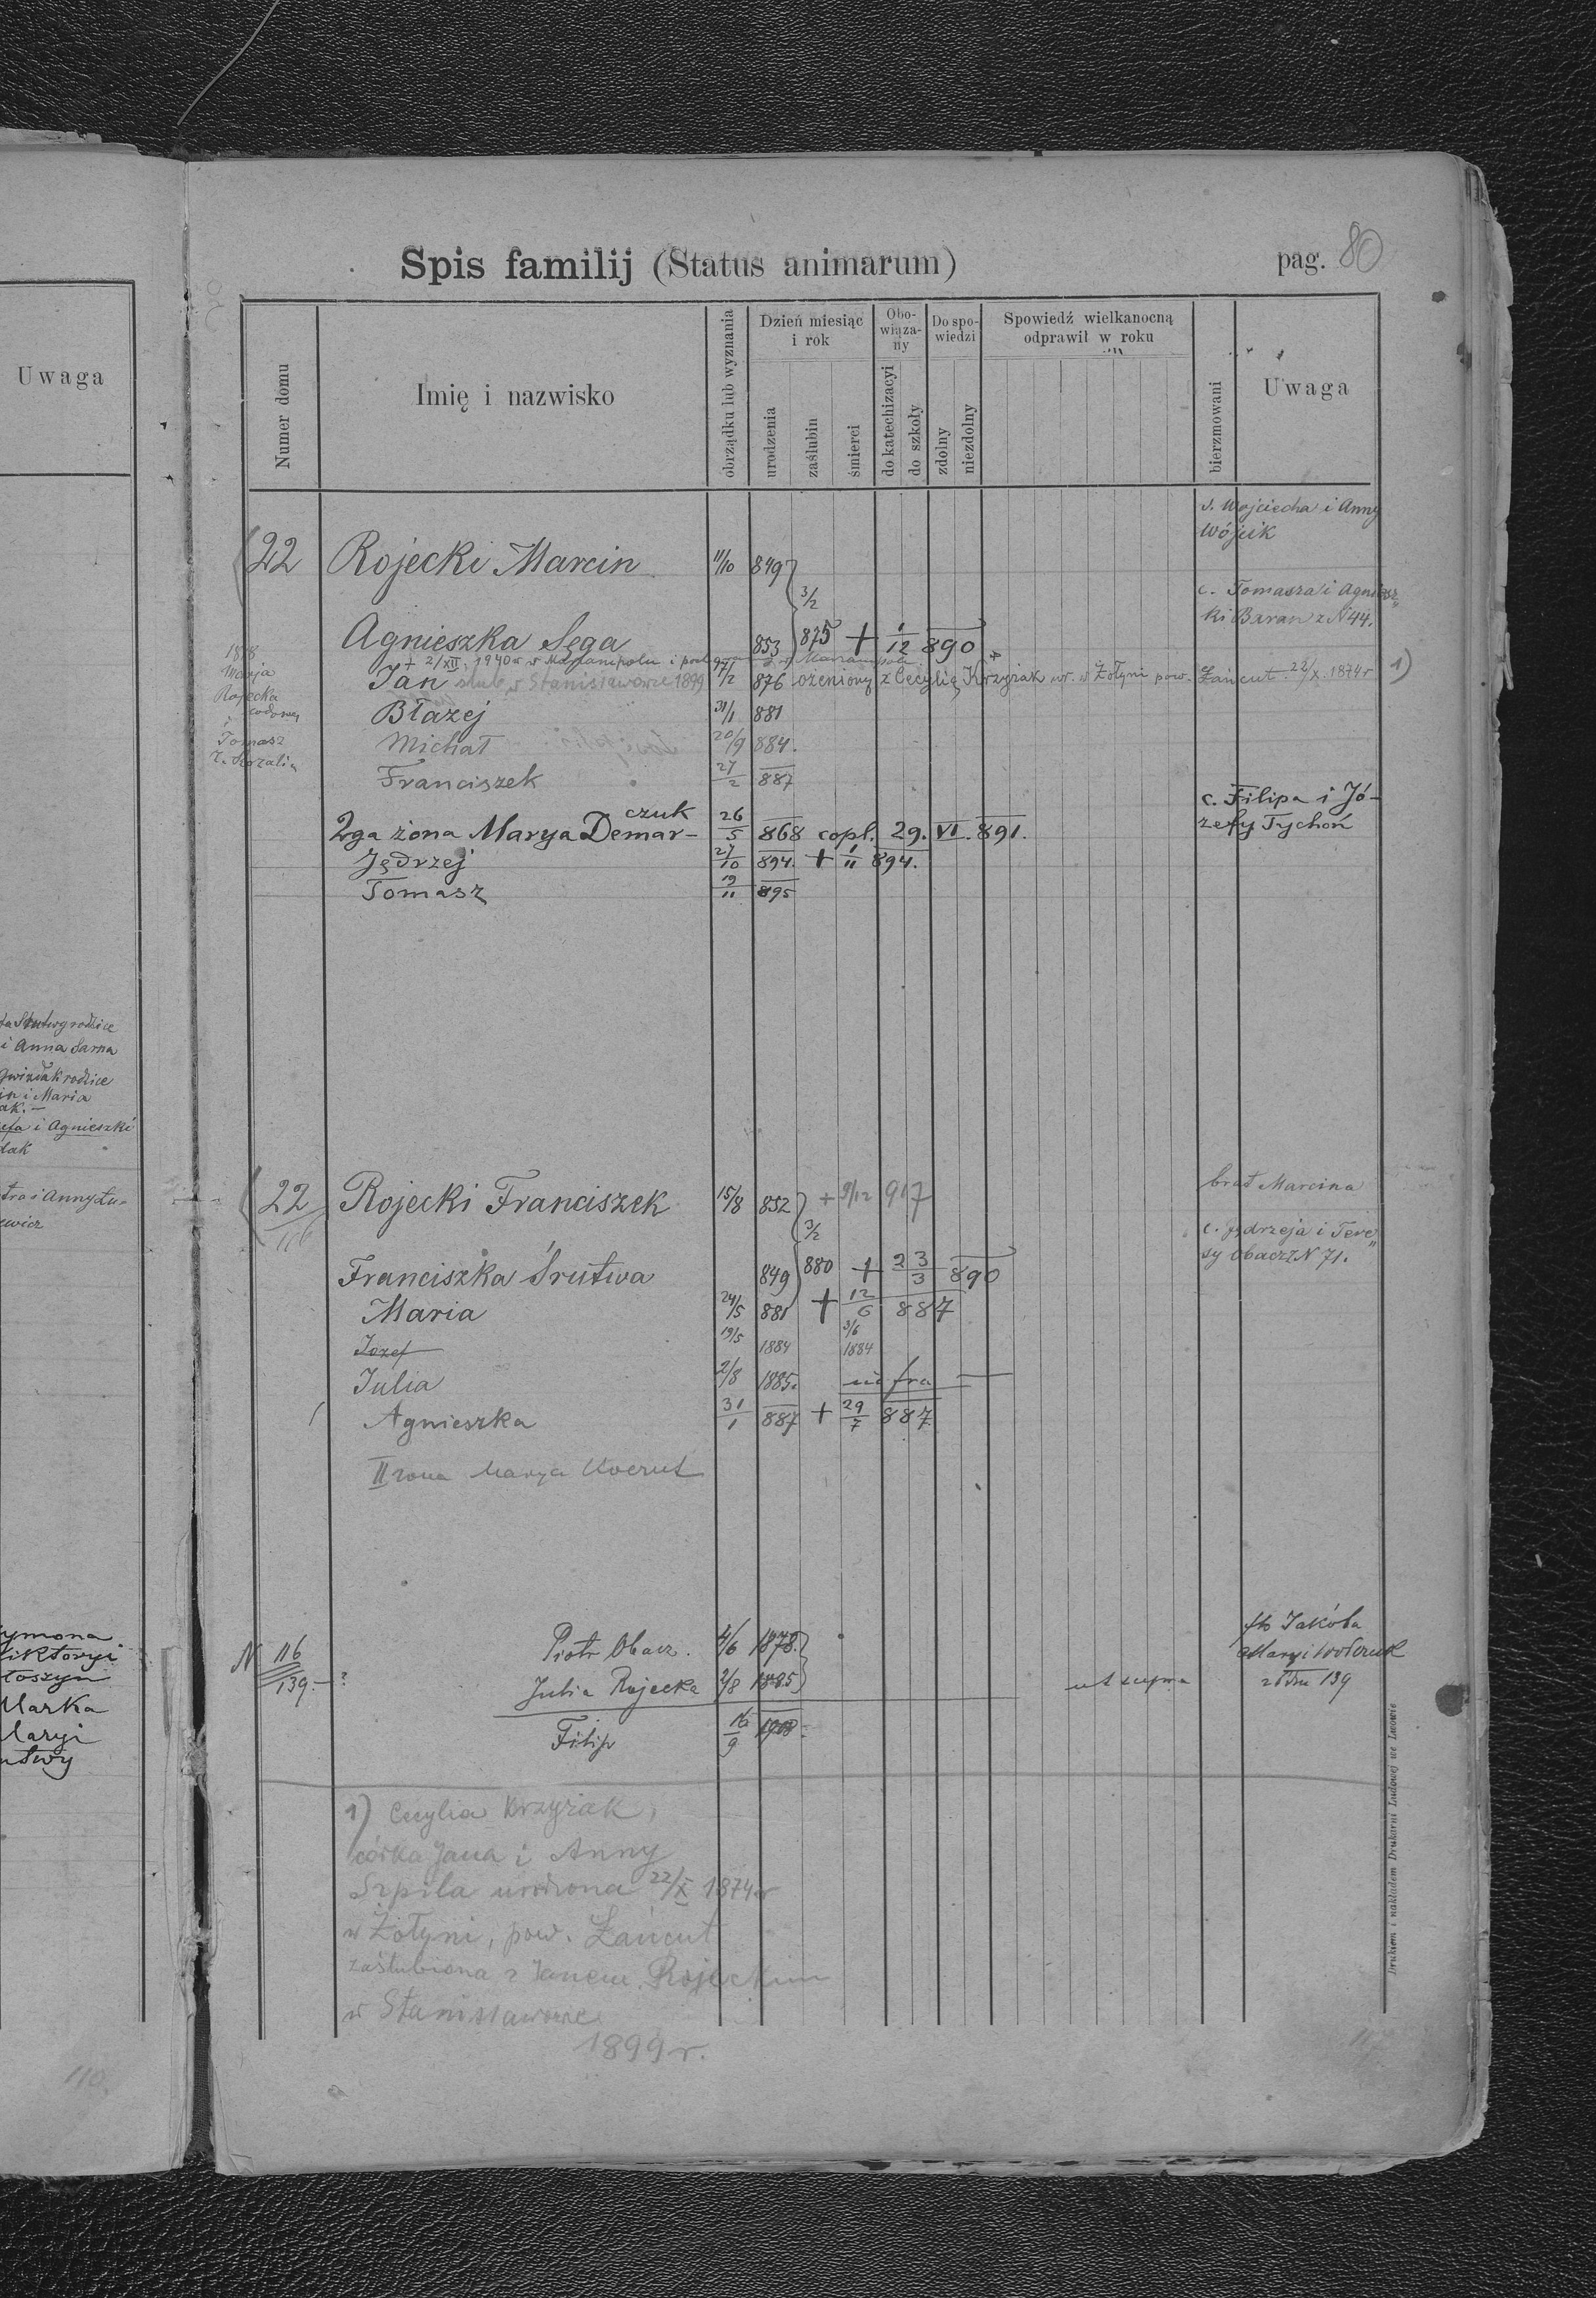 Uwaga
i Anna Sarna
rodzice
i Maria
ak. —
i Agnieszki
ak
tra i Anny Łu-
ewicz
ymona
iktoryi
toszyn
Marka
Maryi
utwy
110
Spis familij (Status animarum)
pag. 80
Numer domu
Imię i nazwisko
obrządku lub wyznania
Dzień miesiąc i rok
urodzenia
zaślubin
śmierci
Obo-wiąza-ny
do katechizacyi
do szkoły
Do spo-wiedzi
zdolny
niezdolny
Spowiedź wielkanocną odprawił w roku
bierzmowani
Uwaga
s. Wojciecha i Anny
Wójcik
22 Rojecki Marcin 11/10 849
3/2
c. Tomasza i Agniesz„
ki Baran z N 44.
Agnieszka Sęga 853 875 + 1/12 890
+ 21/XII. 1940 w Marjampolu i w Marjampolu
Jan ślub w Stanisławowie 1899 17/2 876 ożeniony z Cecylią Krzyżak ur. w Żołyni pow. Łańcut 22/X. 1874 r 1)
1878
Marja
Rojecka
Tomasz
Błażej 31/1 881
Michał 20/9 884.
Franciszek 27/2 887
czuk
2ga żona Marya Demar- 26/5 868 copl. 29. VI. 891.
c. Filipa i Jó-
zefy Tychoń
Jędrzej 27/10 894. + 1/11 894.
Tomasz 19/11 895
22 Rojecki Franciszek 15/8 852 + 9/12 917
brat Marcina
116
3/2
c. Jędrzeja i Tere„
sy Obacz N 71.
Franciszka Śrutwa 849 880 + 23/3 890
Maria 24/5 881 + 12/6 887
Józef 19/5 1884 3/6 1884
Julia 2/8 1885. infra
Agnieszka 31/1 887 + 29/7 887
II żona Marya
N 116 Piotr Obacz. 4/6 1878.
fil. Jakóba
Maryi
139. — ? Julia Rojecka 2/8 1885 ut supra
z domu 139
Filip 16/9 1908.
1) Cecylia Krzyżak,
córka Jana i Anny
Szpila urodzona 22/X 1874 r
w Żołyni, pow. Łańcut
zaślubiona z Janem Rojeckim
w Stanisławowie
1899 r.
Drukiem i nakładem Drukarni Ludowej we Lwowie